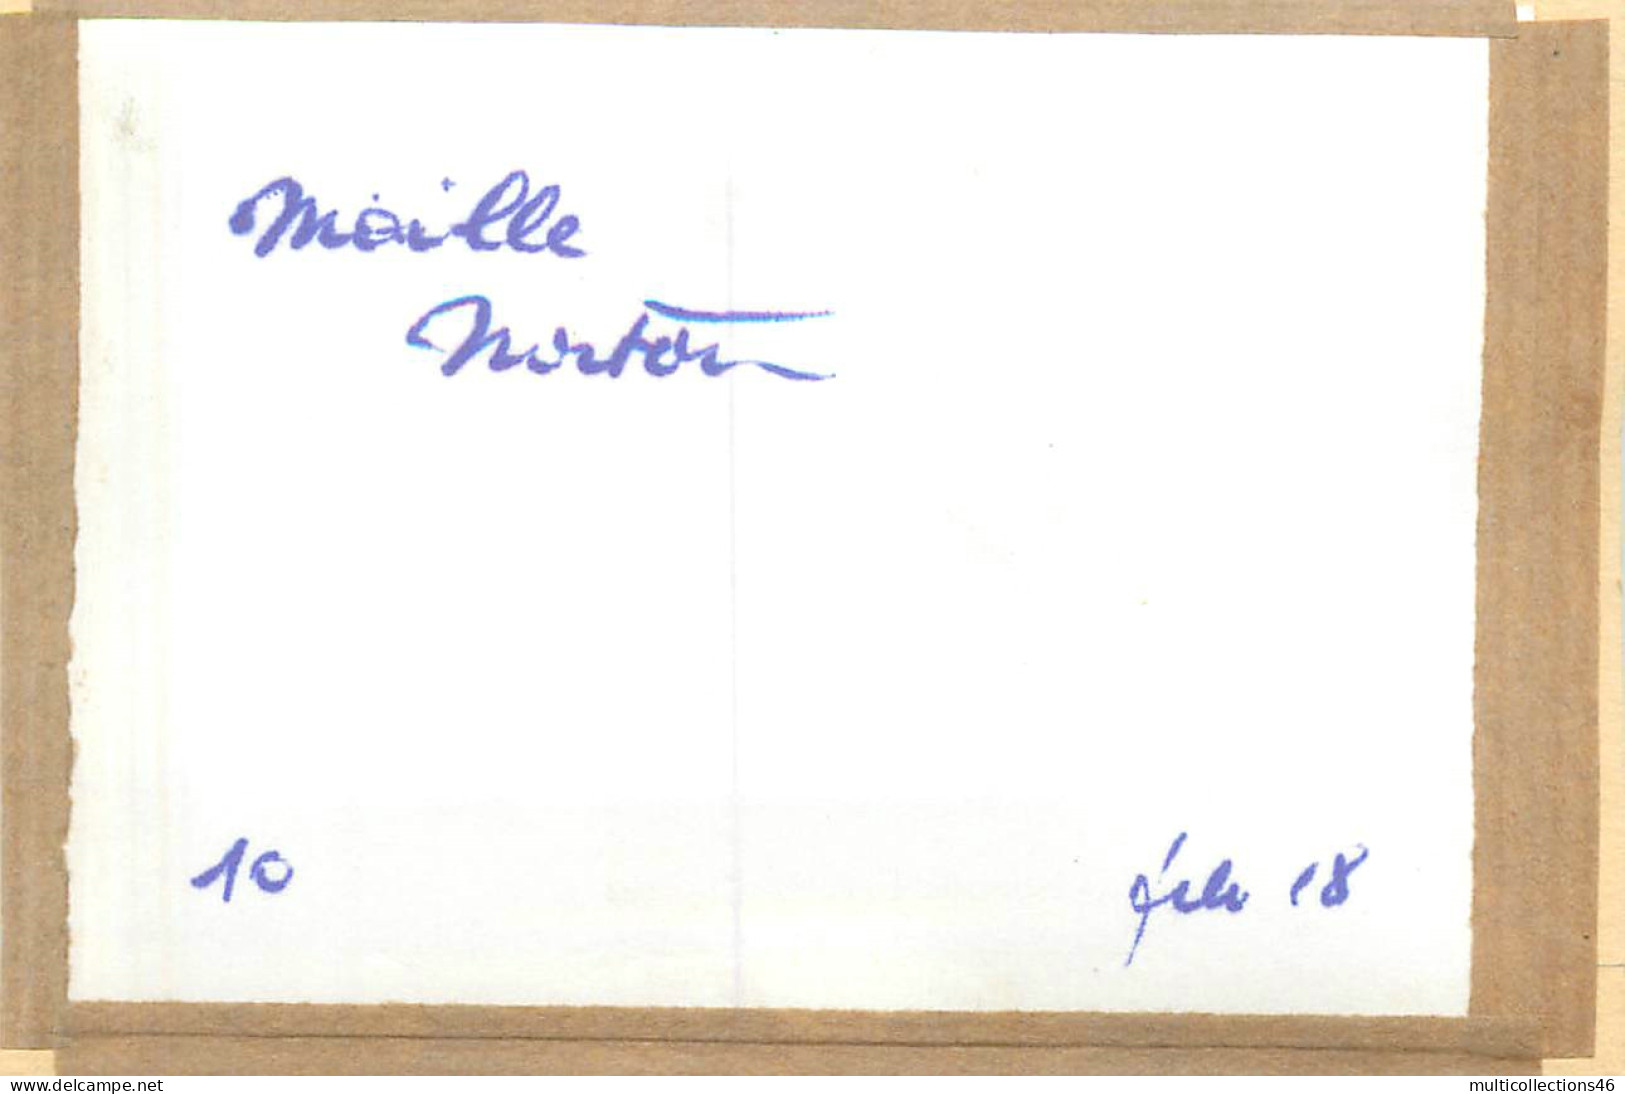 Maille
Norton
10
feb 18
www.delcampe.net
multicollections46